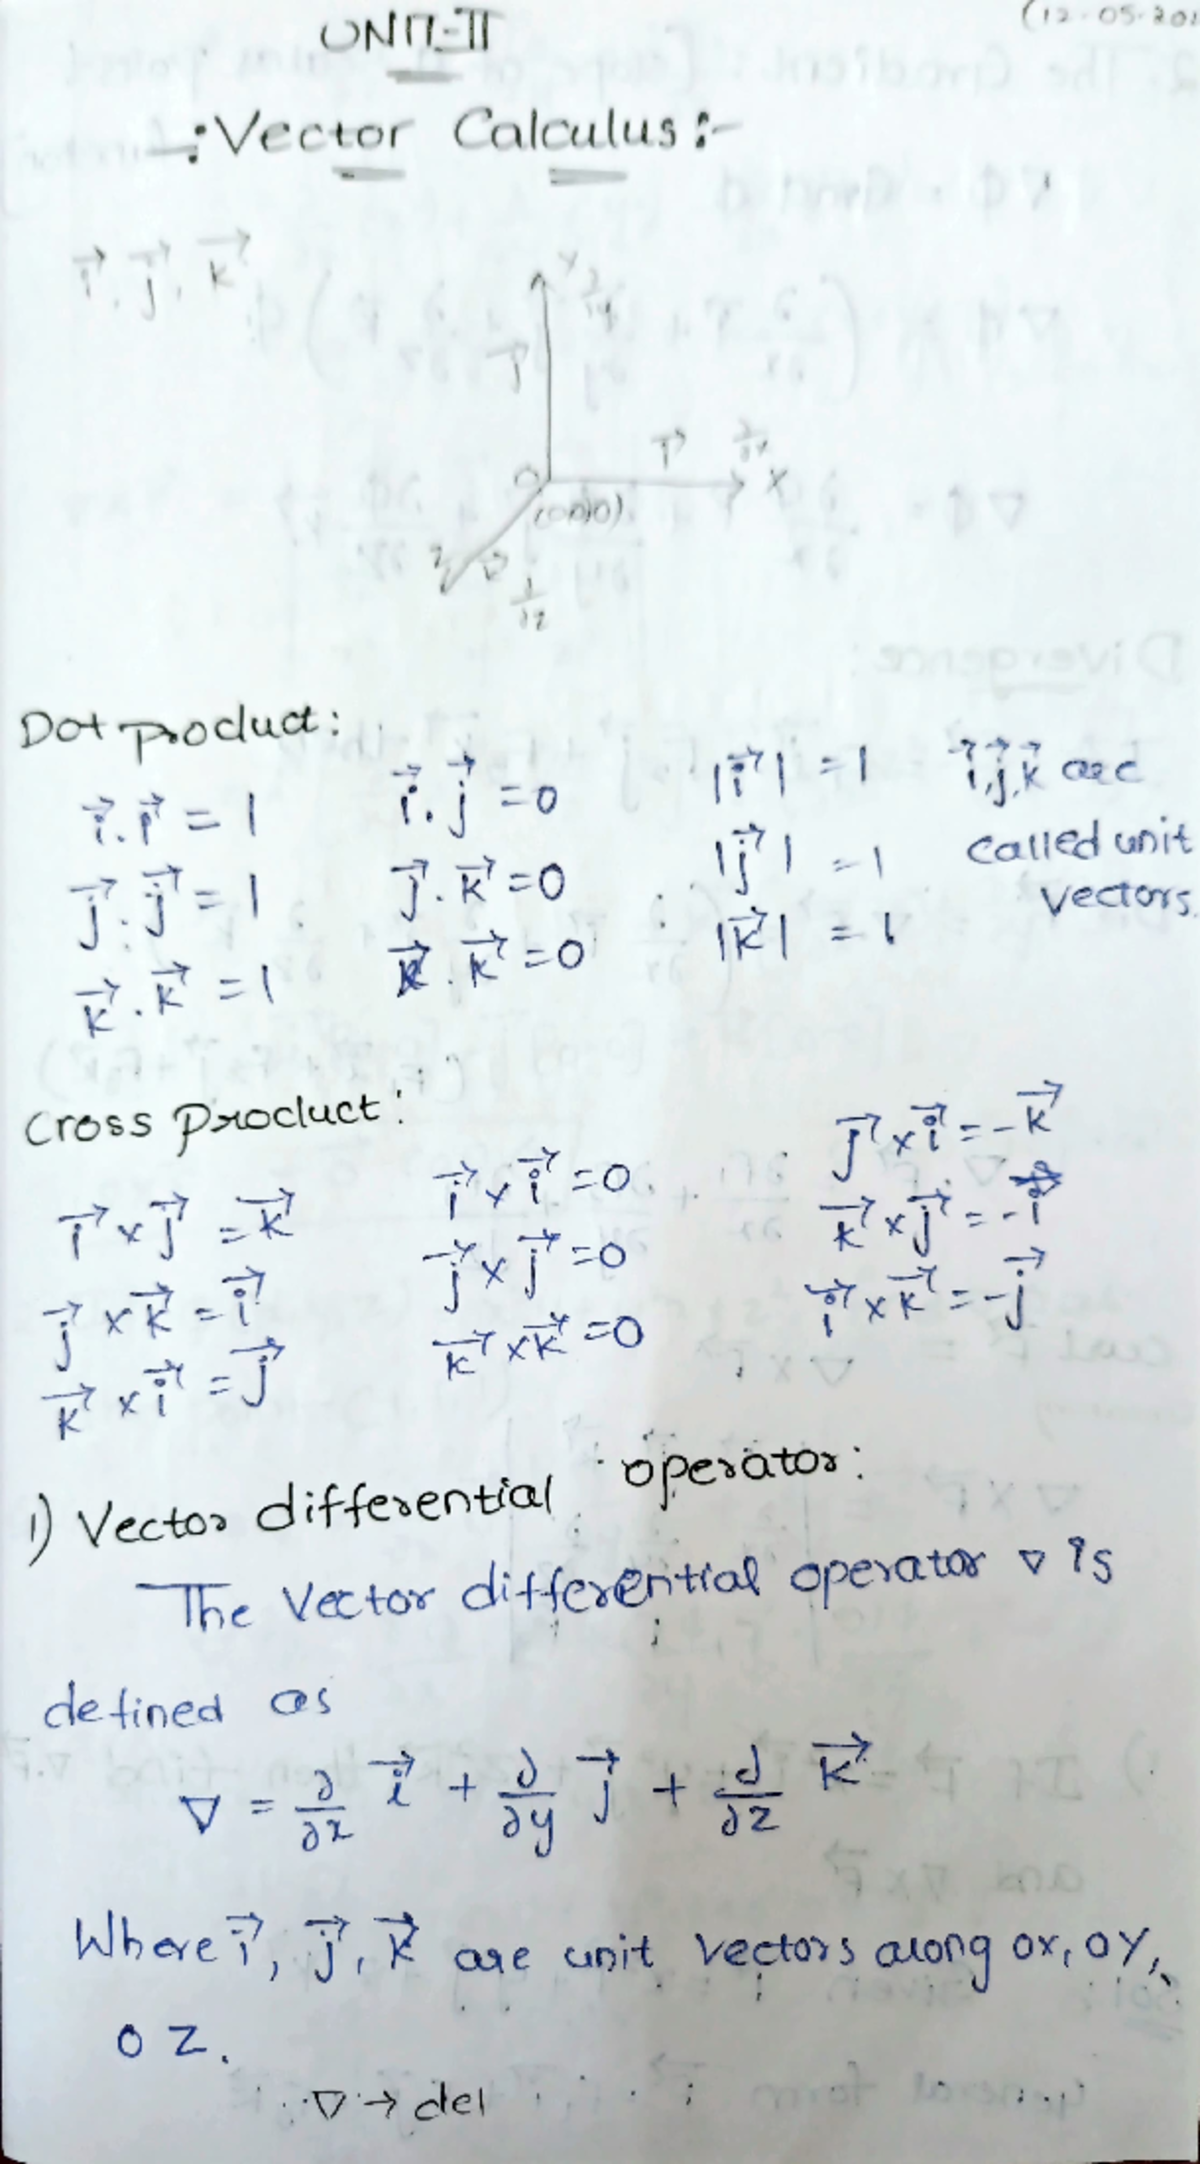 UNIT-II
(12-05-202
-: Vector Calculus :-
i⃗, j⃗, k⃗
Y ∂/∂y
j⃗
i⃗ ∂/∂x X
O (0,0,0)
Z k⃗ ∂/∂z
Dot product:
i⃗.i⃗ = 1 i⃗.j⃗ = 0 |i⃗| = 1 i⃗,j⃗,k⃗ are
j⃗.j⃗ = 1 j⃗.k⃗ = 0 |j⃗| = 1 called unit
k⃗.k⃗ = 1 k⃗.k⃗ = 0 |k⃗| = 1 vectors.
Cross product:
i⃗ × j⃗ = k⃗ i⃗ × i⃗ = 0 j⃗ × i⃗ = -k⃗
j⃗ × k⃗ = i⃗ j⃗ × j⃗ = 0 k⃗ × j⃗ = -i⃗
k⃗ × i⃗ = j⃗ k⃗ × k⃗ = 0 i⃗ × k⃗ = -j⃗
1) Vector differential operator:
The Vector differential operator ∇ is
defined as
∇ = ∂/∂x i⃗ + ∂/∂y j⃗ + ∂/∂z k⃗
Where i⃗, j⃗, k⃗ are unit vectors along ox, oy,
oz.
∇ → del